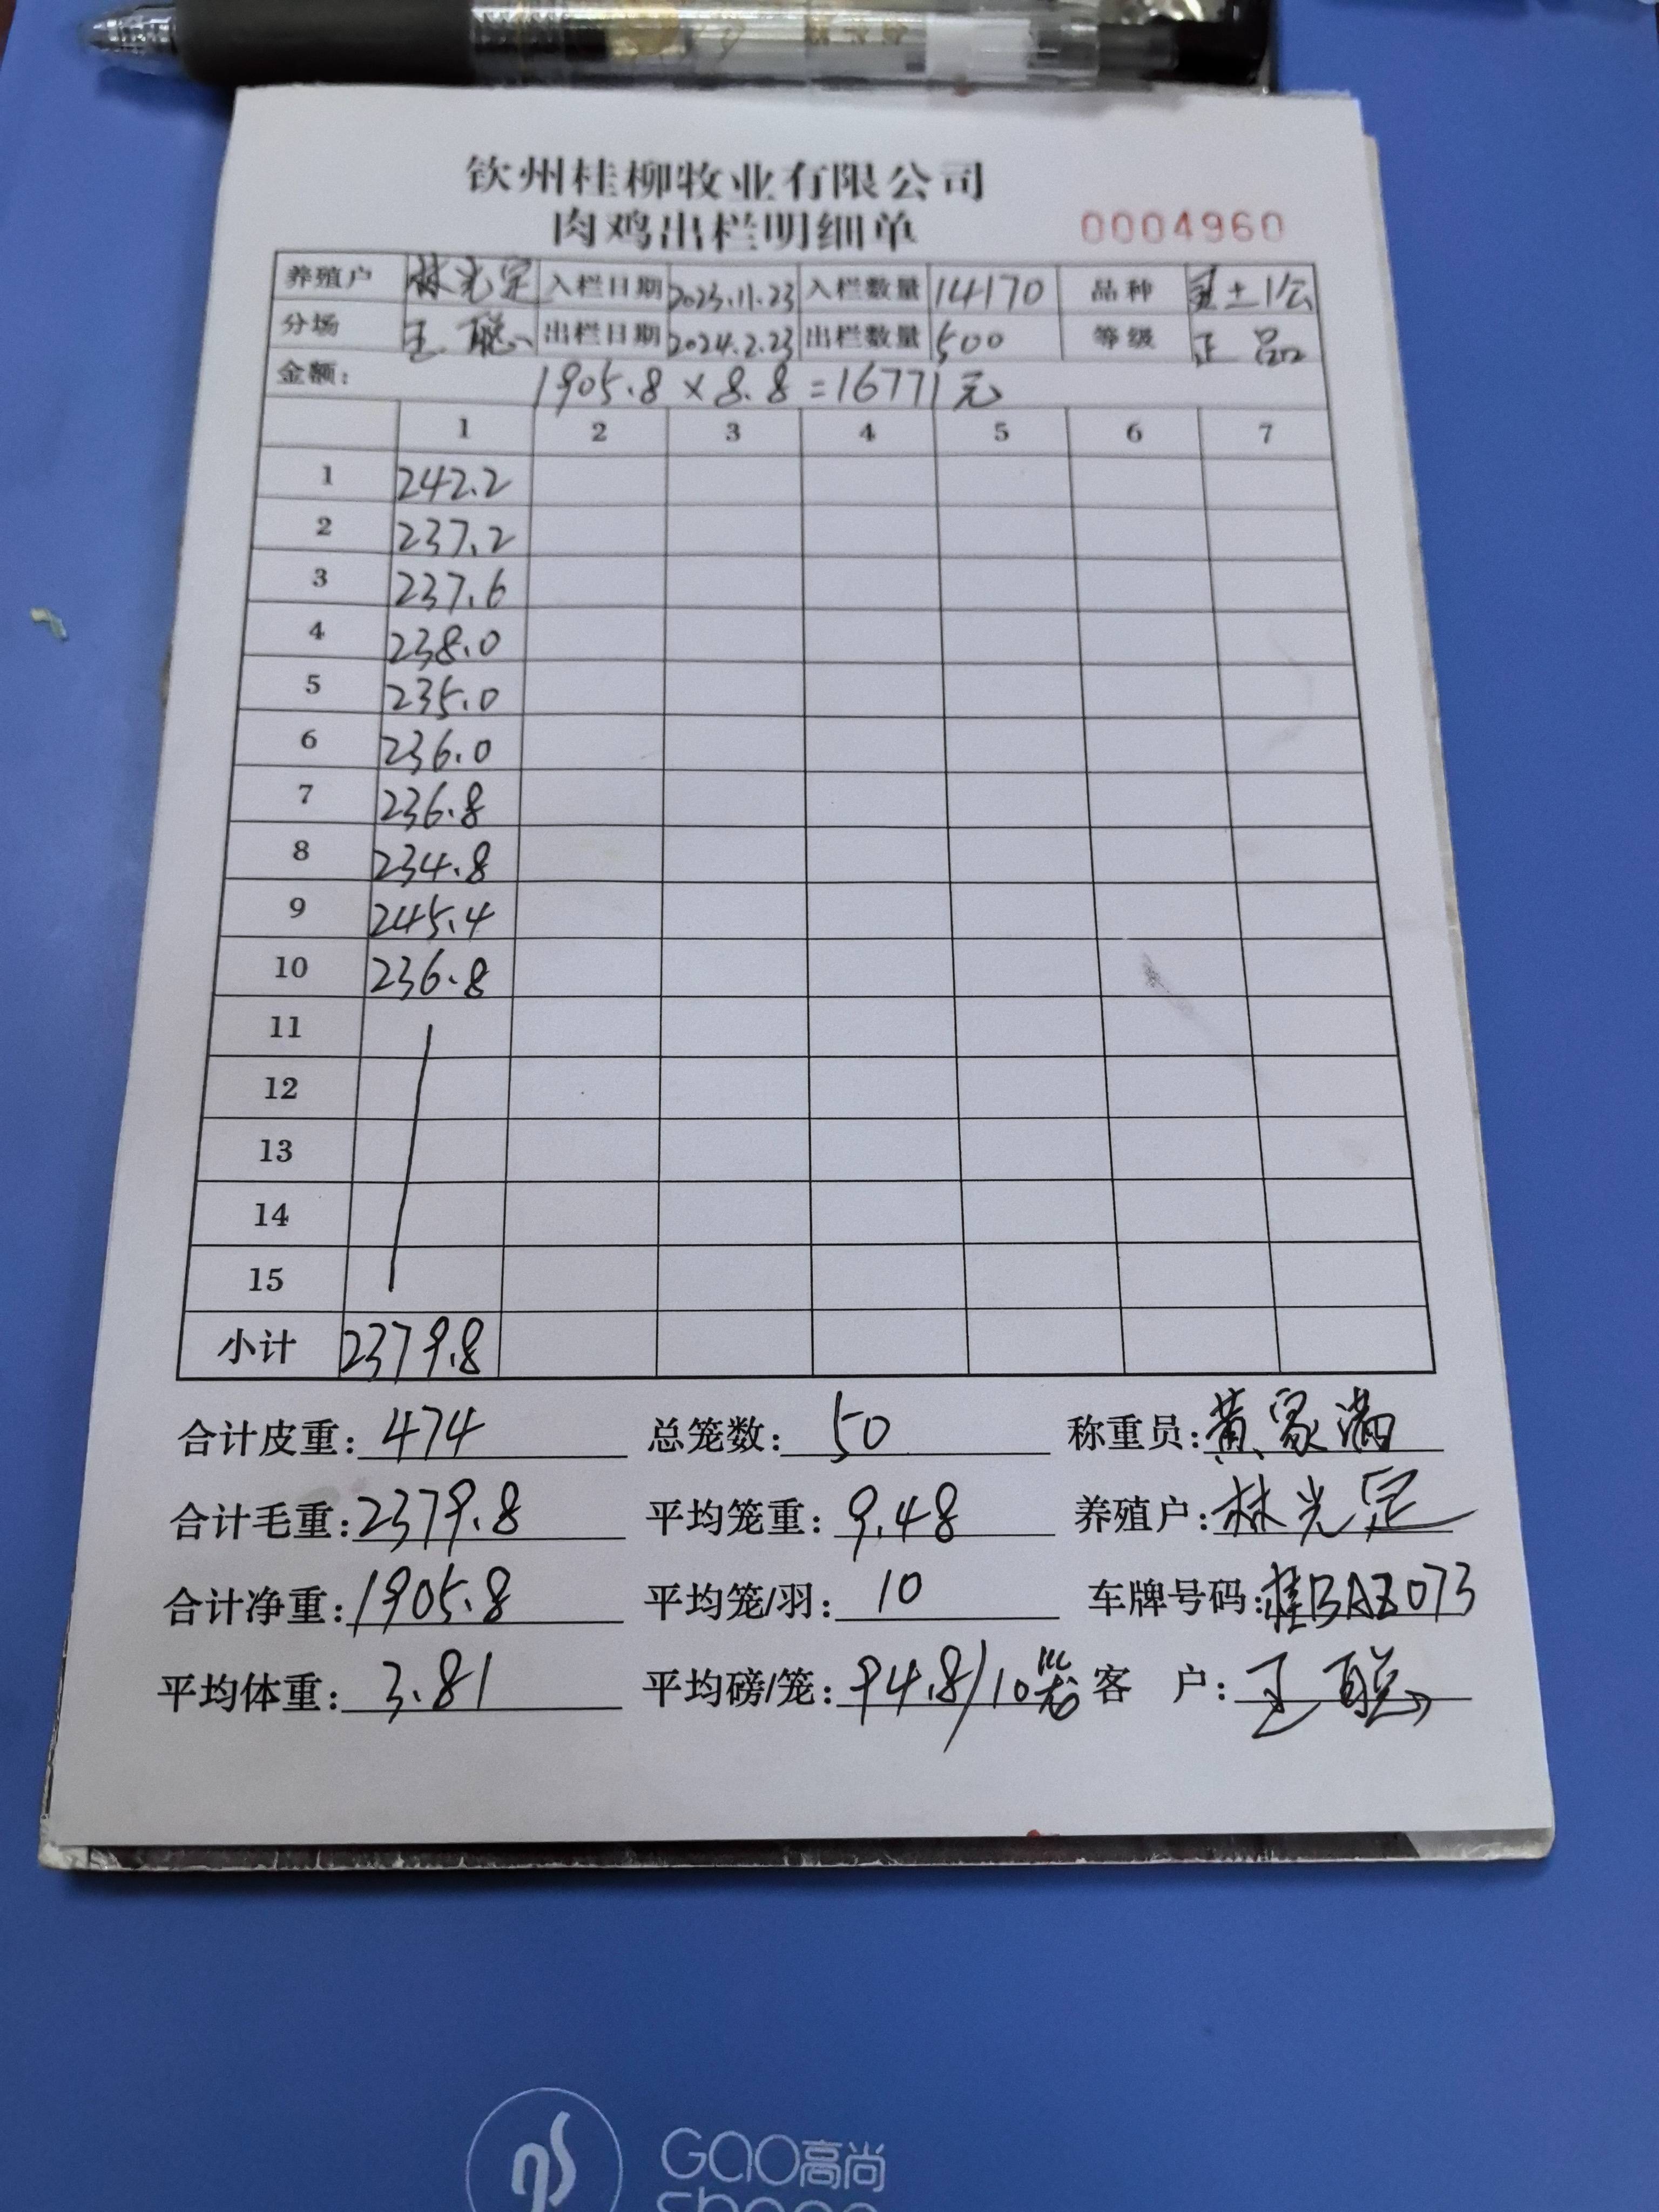 钦州桂柳牧业有限公司
肉鸡出栏明细单 0004960
养殖户 林光定 入栏日期 2023.11.23 入栏数量 14170 品种 土1公
分场 王聪 出栏日期 2024.2.23 出栏数量 500 等级 正品
金额: 1905.8 × 8.8 = 16771元
1 2 3 4 5 6 7
1 242.2
2 237.2
3 237.6
4 238.0
5 235.0
6 236.0
7 236.8
8 234.8
9 245.4
10 236.8
11
12
13
14
15
小计 2379.8
合计皮重: 474 总笼数: 50 称重员: 黄家满
合计毛重: 2379.8 平均笼重: 9.48 养殖户: 林光定
合计净重: 1905.8 平均笼/羽: 10 车牌号码: 桂BAZ073
平均体重: 3.81 平均磅/笼: 94.8/10 客 户: 王聪
GAO高尚